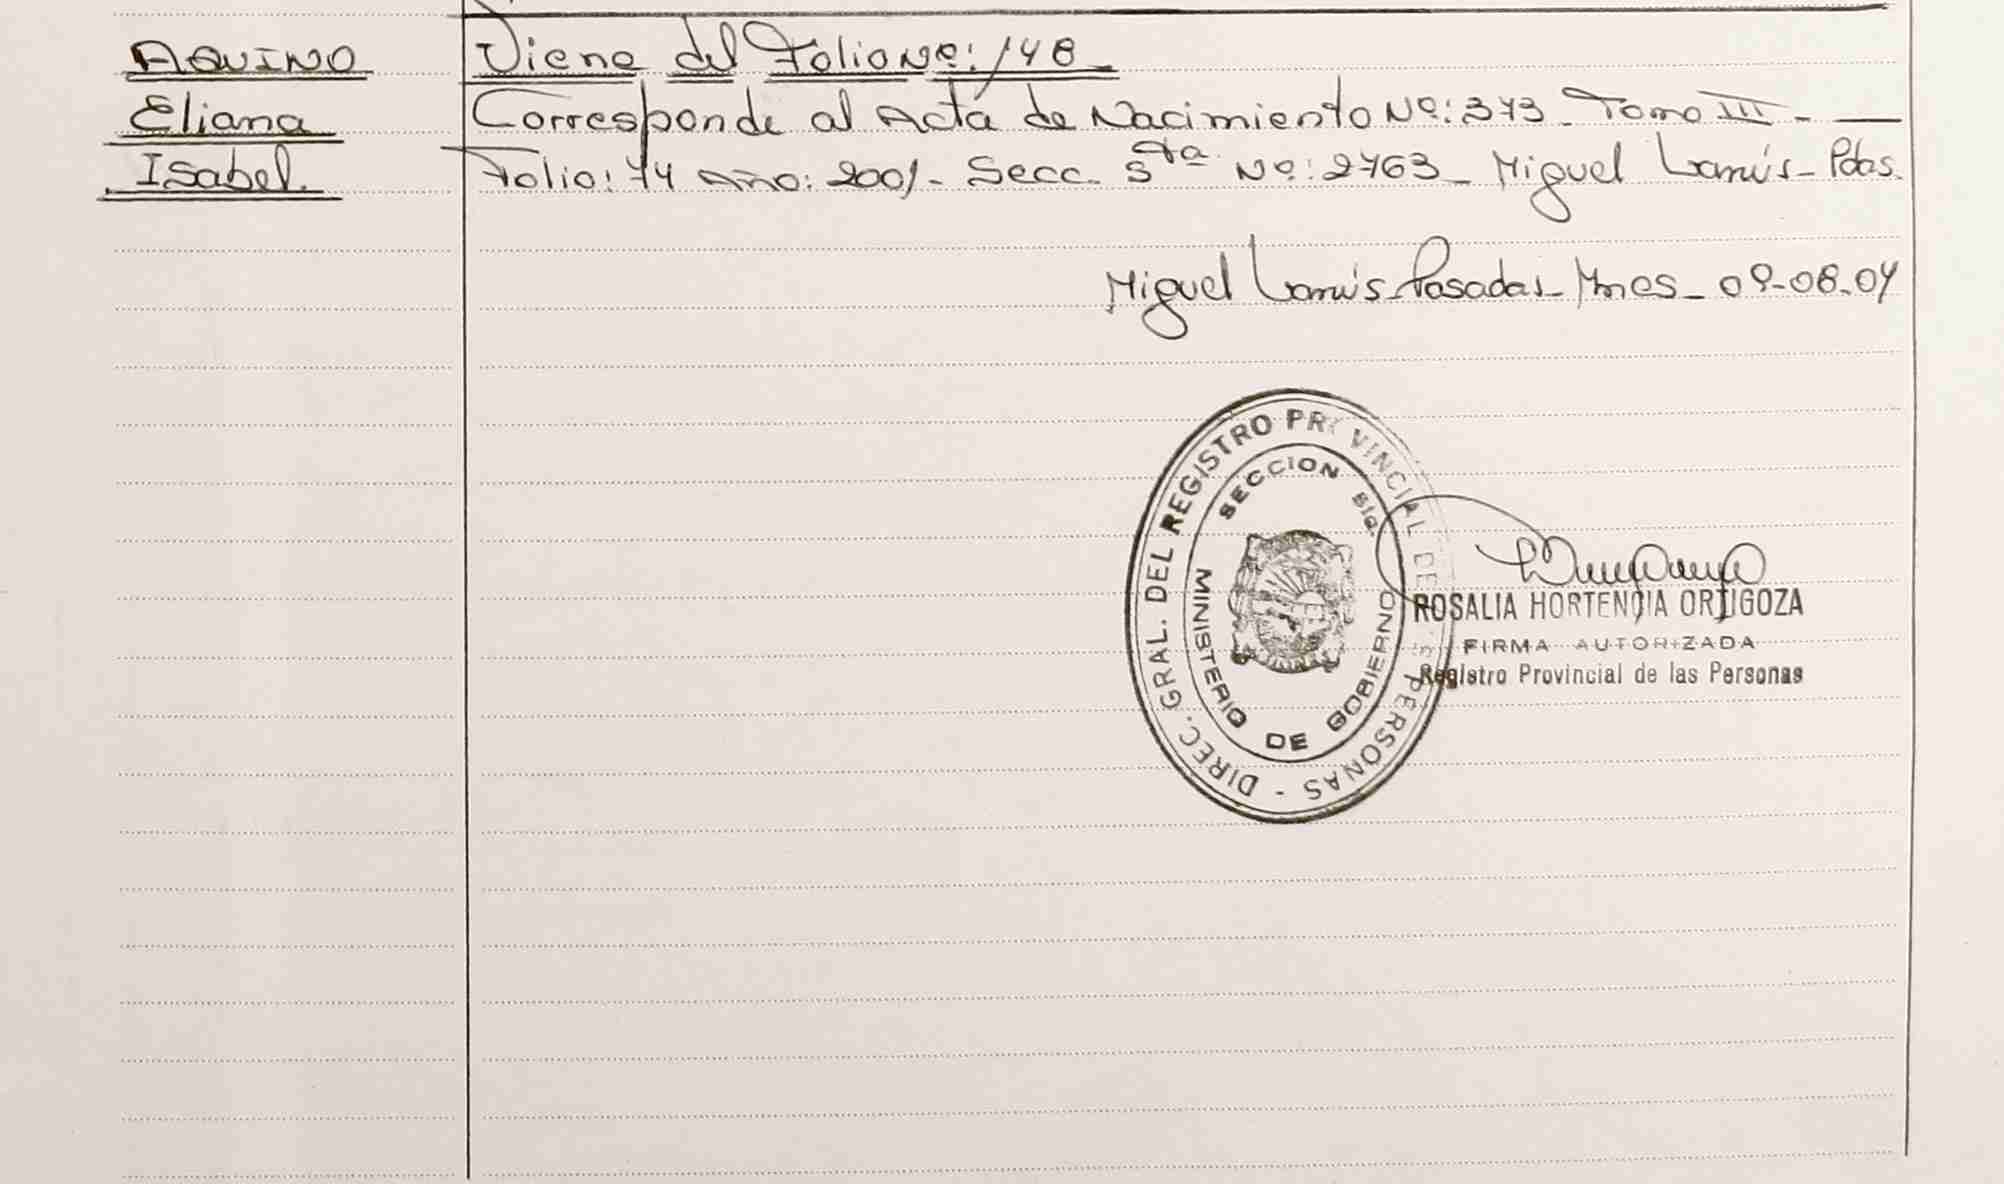 AQUINO
Eliana
Isabel.
Viene del Folio Nº: 148
Corresponde al Acta de Nacimiento Nº: 373 - Tomo III -
Folio: 74 Año: 2001 - Secc. 5ta Nº: 2763 - Miguel Lanús - Pdas.
Miguel Lanús - Posadas - Mnes - 09-08-04
DIREC. GRAL. DEL REGISTRO PROVINCIAL DE PERSONAS -
SECCION 5ta.
MINISTERIO DE GOBIERNO
ROSALIA HORTENCIA ORTIGOZA
FIRMA AUTORIZADA
Registro Provincial de las Personas